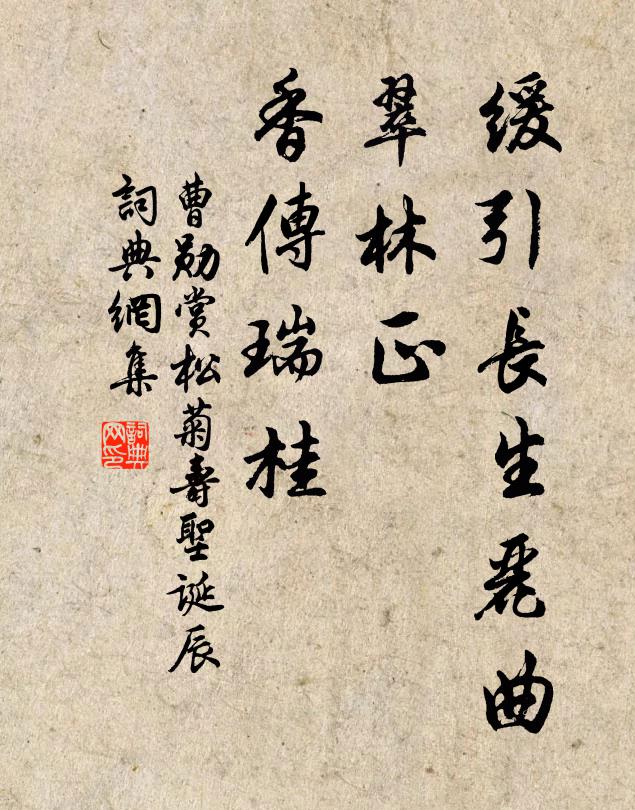 緩引長生麗曲
翠林正
香傳瑞桂
曹勛賞松菊壽聖誕辰
詞典網集
詞典网印